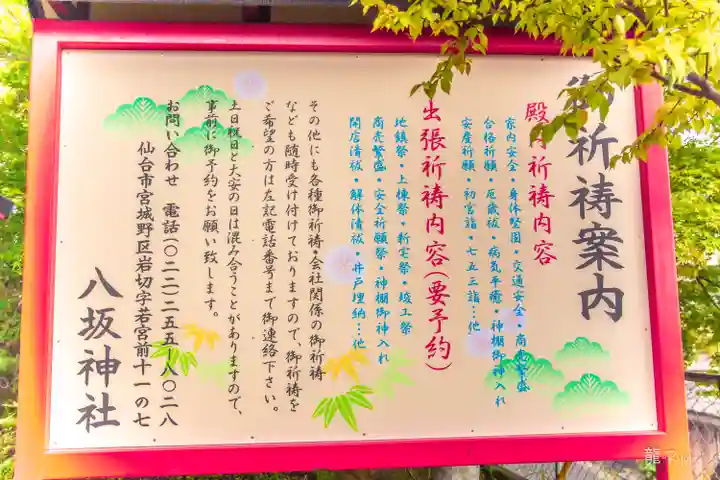 御祈祷案内
殿内祈祷内容
家内安全・身体堅固・交通安全・商売繁盛
合格祈願・厄歳祓・病気平癒・神棚御神入れ
安産祈願・初宮詣・七五三詣…他
出張祈祷内容(要予約)
地鎮祭・上棟祭・新宅祭・竣工祭
商売繁盛・安全祈願祭・神棚御神入れ
開店清祓・解体清祓・井戸埋納…他
その他にも各種御祈祷・会社関係の御祈祷
なども随時受け付けておりますので、御祈祷を
ご希望の方は左記電話番号まで御連絡下さい。
土日祝日と大安の日は混み合うことがありますので、
事前に御予約をお願い致します。
お問い合わせ 電話(〇二二)二五五-八〇二八
仙台市宮城野区岩切字若宮前十一の七
八坂神社